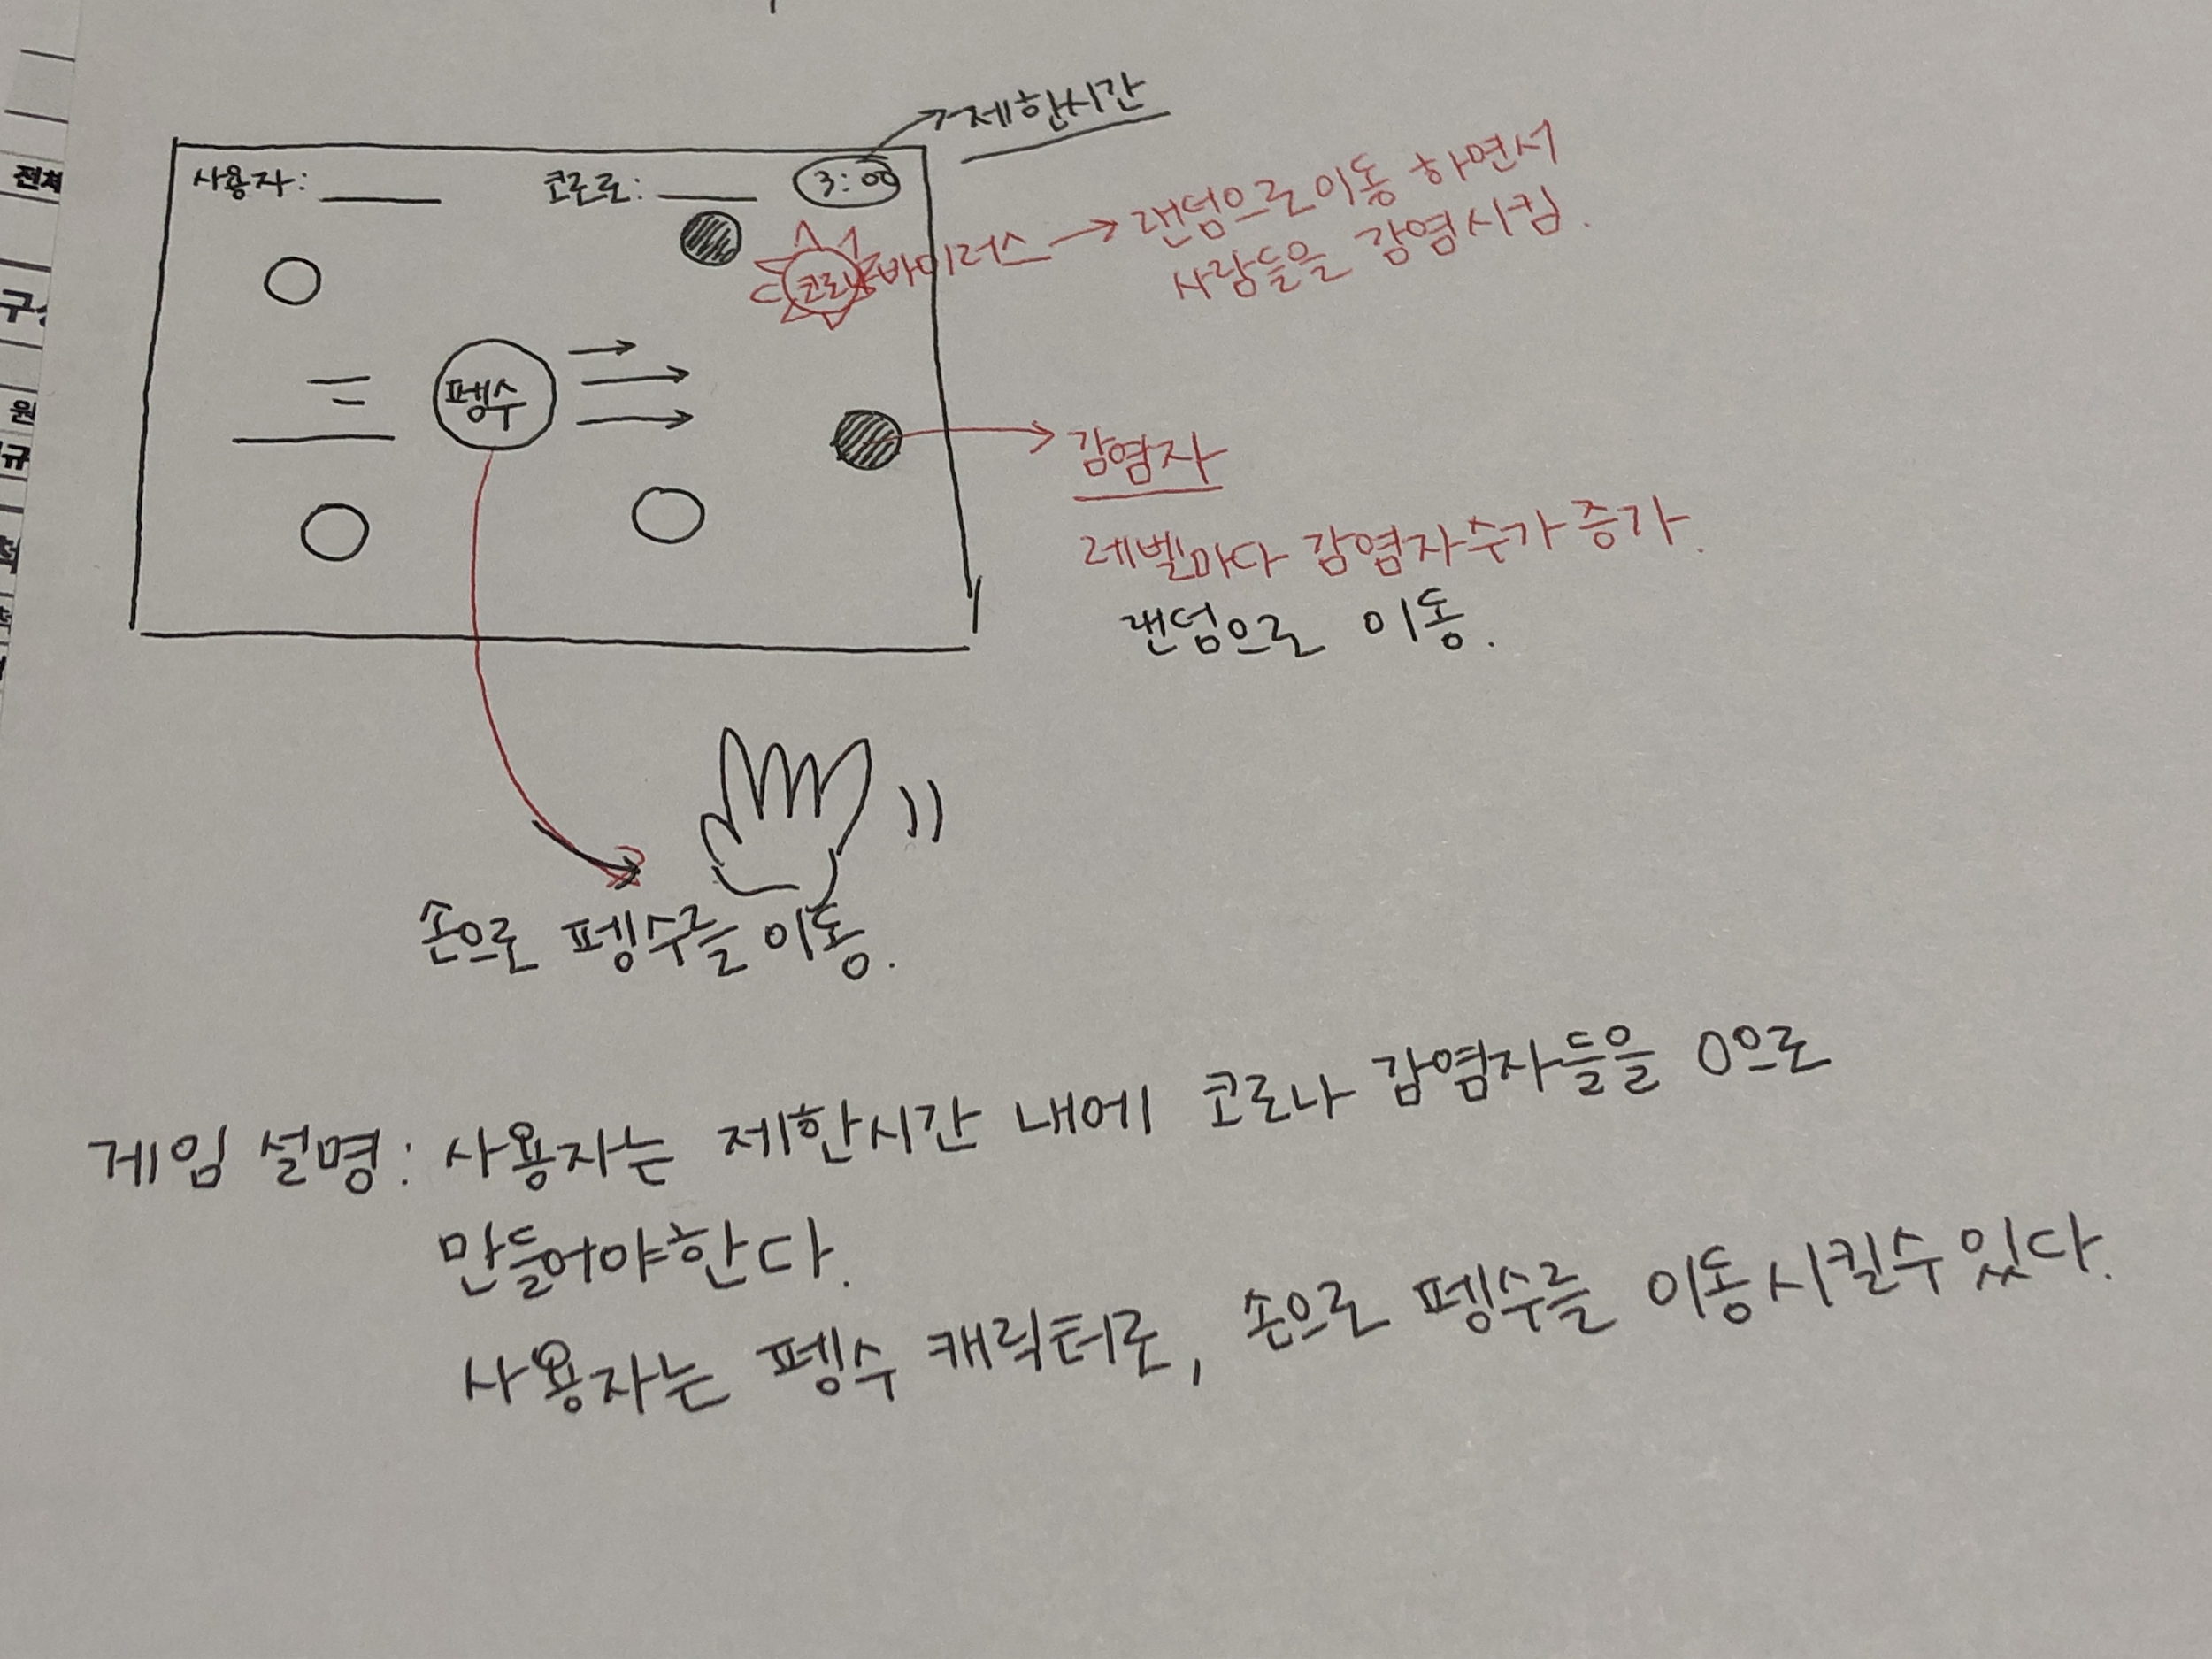 제한시간
사용자: 코로로: 3:00
코로나 바이러스 → 랜덤으로 이동 하면서
사람들을 감염시킴.
펭수
감염자
레벨마다 감염자수가 증가.
랜덤으로 이동.
손으로 펭수를 이동.
게임 설명: 사용자는 제한시간 내에 코로나 감염자들을 0으로
만들어야한다.
사용자는 펭수 캐릭터로, 손으로 펭수를 이동시킬수있다.
전체
구
원
규